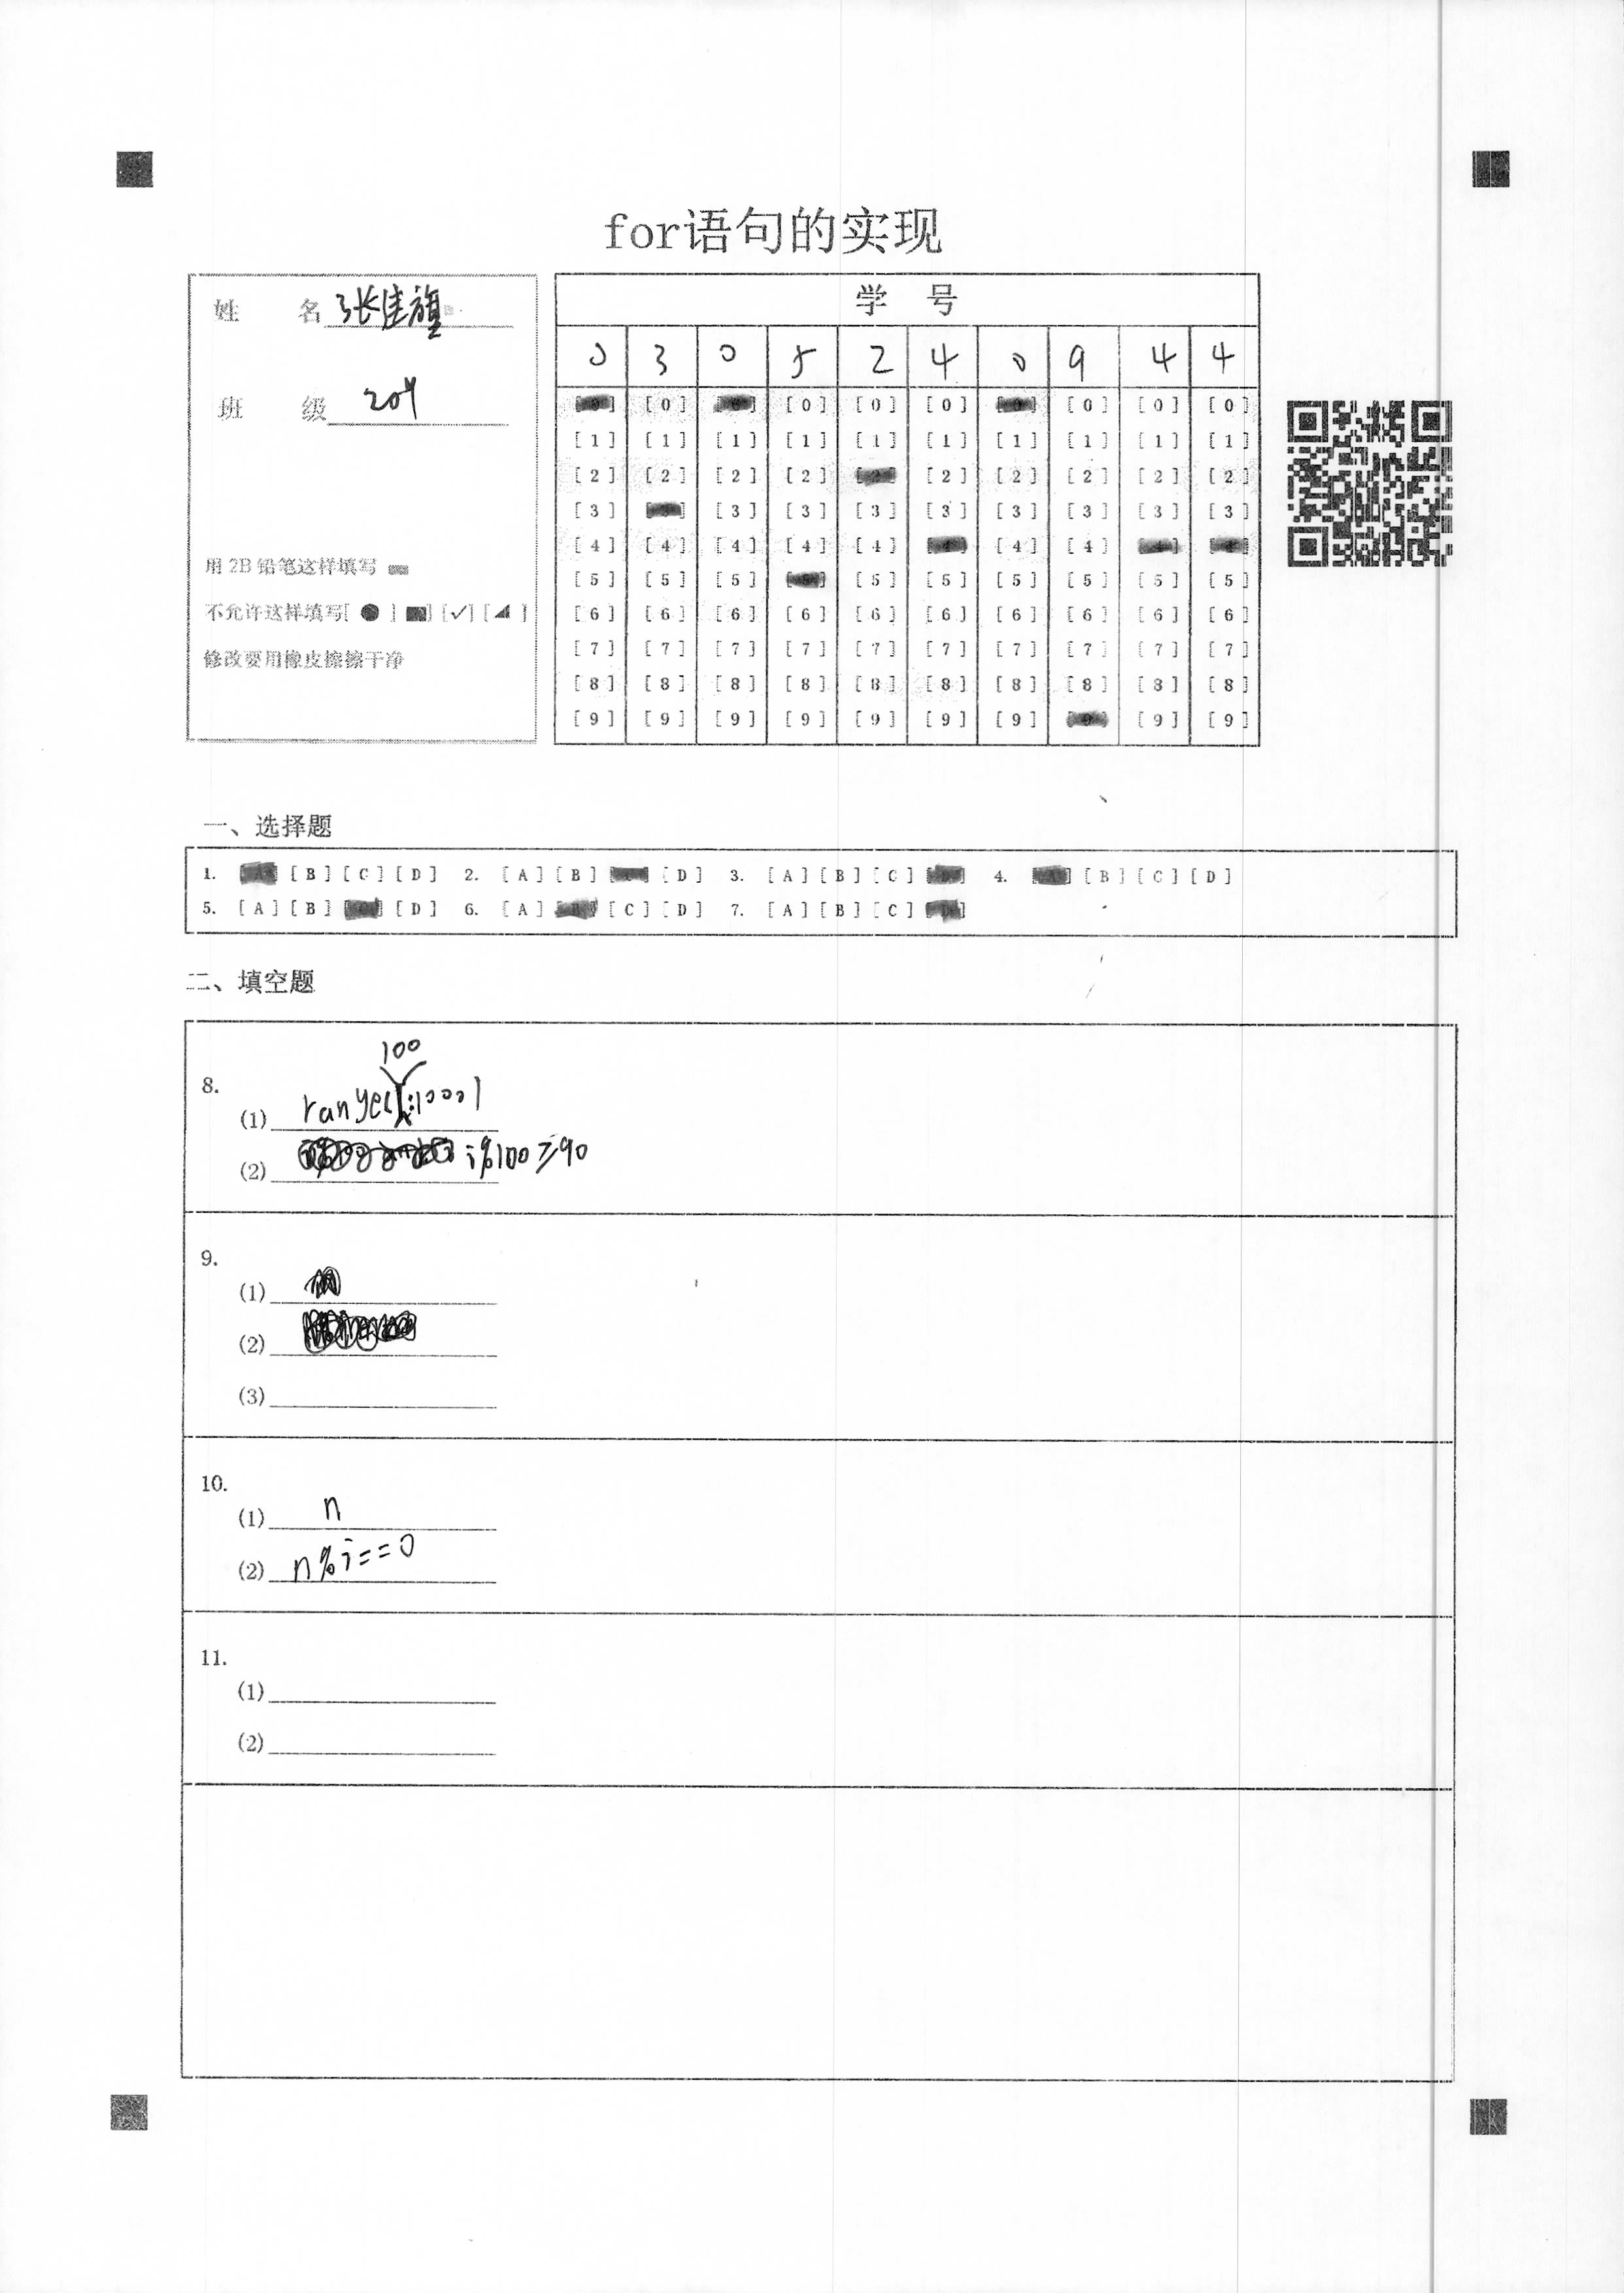 for语句的实现
姓 名 张佳旗
班 级 204
用 2B 铅笔这样填写
不允许这样填写[ ● ] [■] [✓] [◢ ]
修改要用橡皮擦擦干净
学 号
0 3 0 5 2 4 0 9 4 4
[0] [0] [0] [0] [0] [0] [0]
[1] [1] [1] [1] [1] [1] [1] [1] [1] [1]
[2] [2] [2] [2] [2] [2] [2] [2] [2] [2]
[3] [3] [3] [3] [3] [3] [3] [3] [3] [3]
[4] [4] [4] [4] [4] [4] [4] [4] [4] [4]
[5] [5] [5] [5] [5] [5] [5] [5] [5] [5]
[6] [6] [6] [6] [6] [6] [6] [6] [6] [6]
[7] [7] [7] [7] [7] [7] [7] [7] [7] [7]
[8] [8] [8] [8] [8] [8] [8] [8] [8] [8]
[9] [9] [9] [9] [9] [9] [9] [9] [9] [9]
一、选择题
1. [A] [B] [C] [D] 2. [A] [B] [C] [D] 3. [A] [B] [C] [D] 4. [A] [B] [C] [D]
5. [A] [B] [C] [D] 6. [A] [B] [C] [D] 7. [A] [B] [C] [D]
二、填空题
8.
100
(1) range(:1000)
(2) i%100≥90
9.
(1)
(2)
(3)
10.
(1) n
(2) n%i==0
11.
(1)
(2)